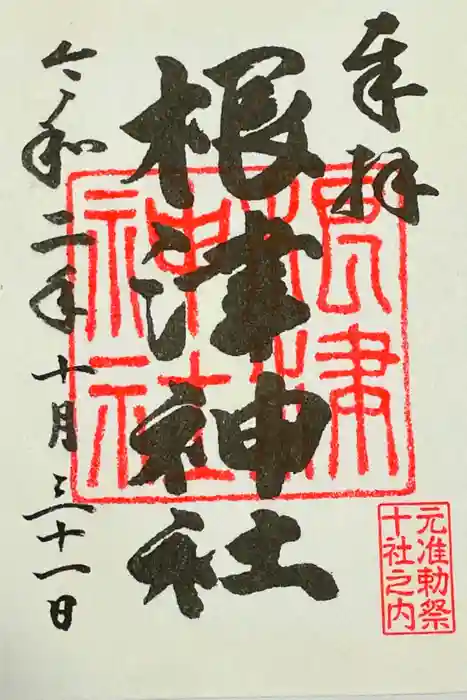 奉拝
根津神社
根津
神社
元准勅祭
十社之内
令和二年十月三十一日